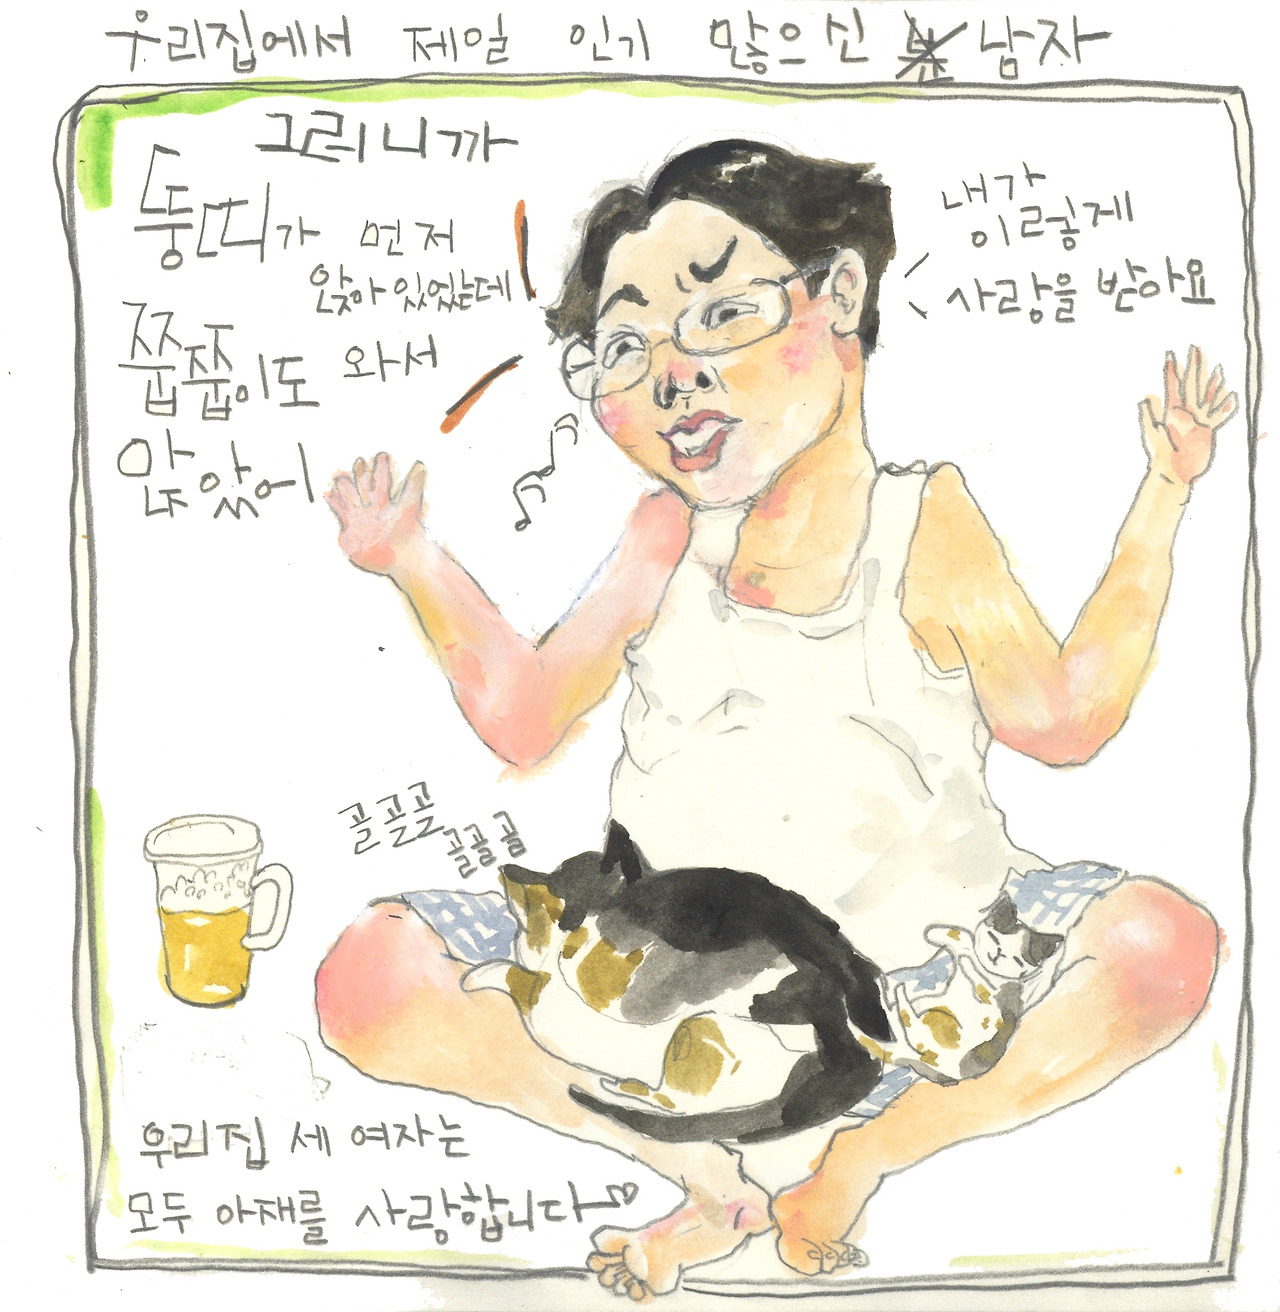 우리집에서 제일 인기 많으신 분 남자
그러니까
뚱띠가 먼저
앉아있었는데
쭙쭙이도 와서
앉았어
내가
이렇게
사랑을 받아요
골골골
골골골
우리집 세 여자는
모두 아재를 사랑합니다